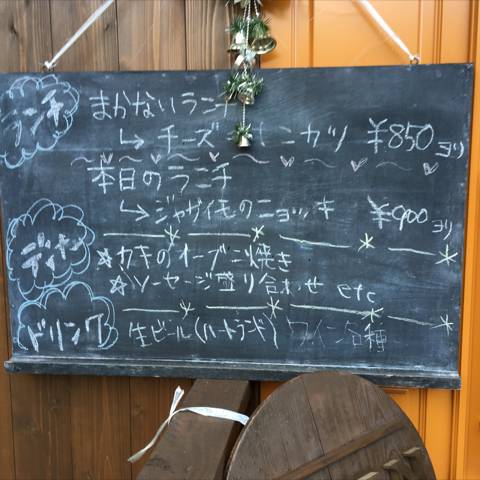 ランチ
まかないランチ
↳ チーズ ニカツ ¥850ヨリ
本日のランチ
↳ ジャガイモのニョッキ ¥900ヨリ
ディナー
☆カキのオーブン焼き
☆ソーセージ盛り合わせ etc
ドリンク
生ビール(ハートランド) ワイン各種